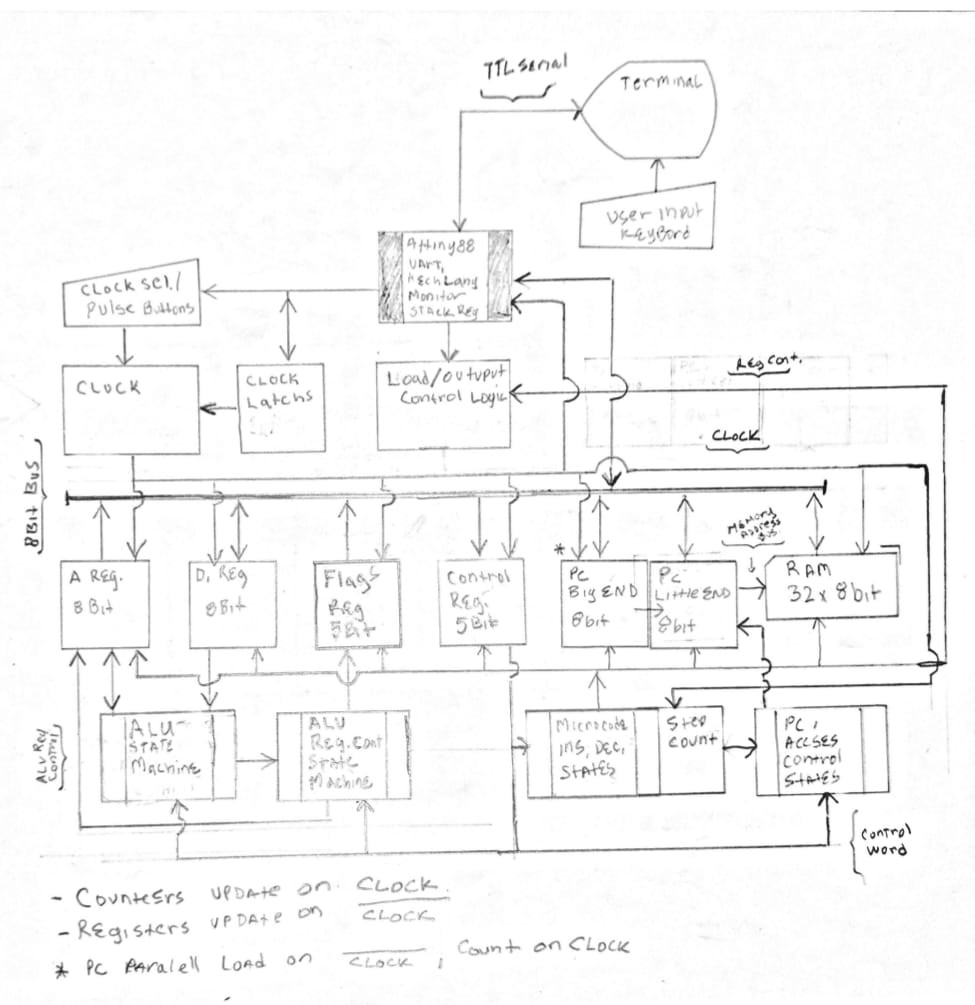 TTL Serial
Terminal
User Input
KEYBord
Attiny88
UART,
Mech Lang
Monitor
Stack Reg
Clock Sel./
Pulse Buttons
CLOCK
CLOCK
Latchs
Load/Outuput
Control Logic
Reg Cont.
CLOCK
8Bit BuS
Memory
Address
Bus
A Reg.
8 Bit
D, Reg
8Bit
Flags
Reg
5Bit
Control
Reg.
5Bit
*
PC
Big END
8bit
PC
Little END
8bit
RAM
32x8bit
ALU Reg
Control,
ALU
STATE
Machine
ALU
Reg.Cont
State
Machine
Microcode
INS, DEC,
STATES
Step
Count
PC,
ACCSES
Control
STATES
Control
Word
- Countesrs UPDATE on CLOCK.
- REgisters UPDATE on C̅L̅O̅C̅K̅
* PC PAralell Load on C̅L̅O̅C̅K̅, Count on CLOCK